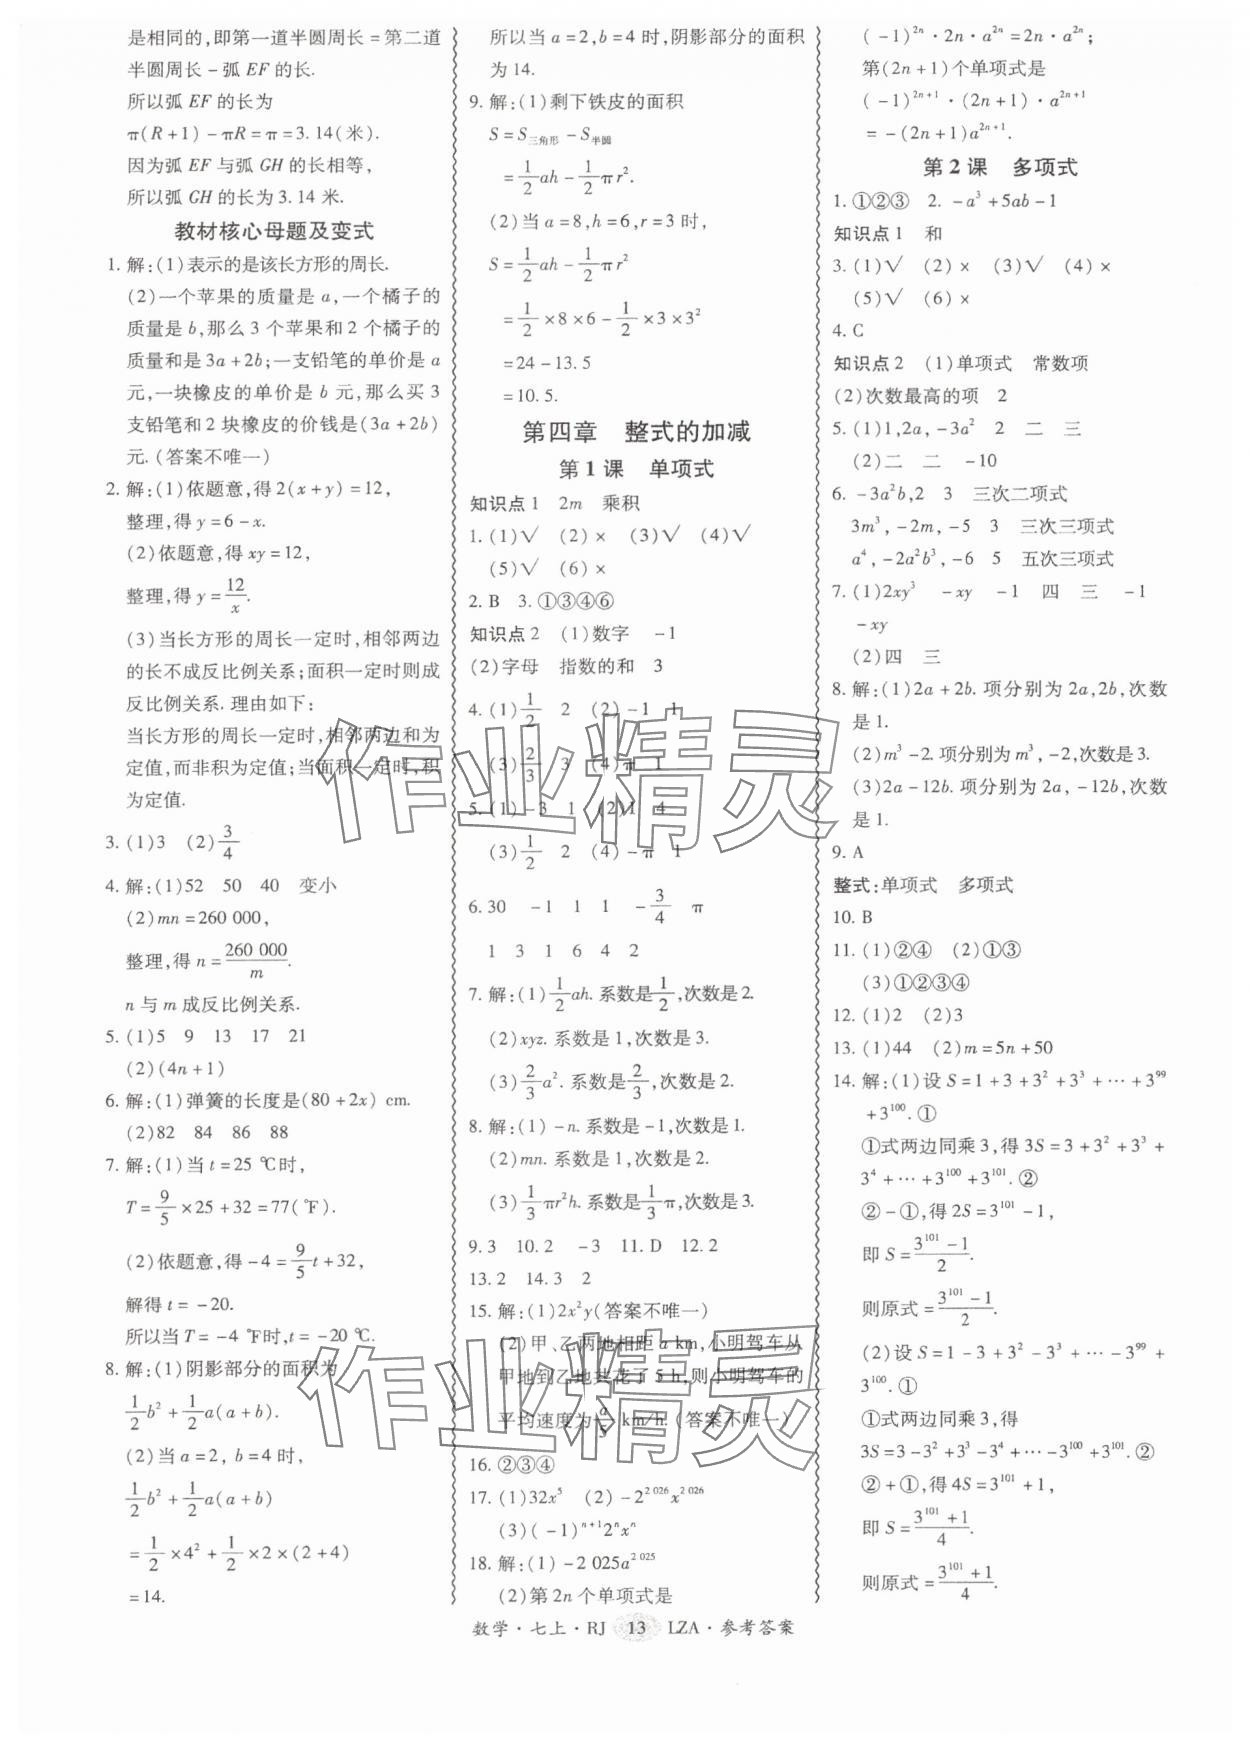 是相同的,即第一道半圆周长=第二道
半圆周长-弧 EF 的长.
所以弧 EF 的长为
π(R+1)-πR=π=3.14(米).
因为弧 EF 与弧 GH 的长相等,
所以弧 GH 的长为3.14米.
教材核心母题及变式
1. 解:(1)表示的是该长方形的周长.
(2)一个苹果的质量是 a,一个橘子的
质量是 b,那么 3 个苹果和 2 个橘子的
质量和是 3a+2b;一支铅笔的单价是 a
元,一块橡皮的单价是 b 元,那么买 3
支铅笔和 2 块橡皮的价钱是(3a+2b)
元.(答案不唯一)
2. 解:(1)依题意,得 2(x+y)=12,
整理,得 y=6-x.
(2)依题意,得 xy=12,
整理,得 y=12/x.
(3)当长方形的周长一定时,相邻两边
的长不成反比例关系;面积一定时则成
反比例关系.理由如下:
当长方形的周长一定时,相邻两边和为
定值,而非积为定值;当面积一定时,积
为定值.
3. (1)3 (2)3/4
4. 解:(1)52 50 40 变小
(2)mn=260 000,
整理,得 n=260 000/m.
n 与 m 成反比例关系.
5. (1)5 9 13 17 21
(2)(4n+1)
6. 解:(1)弹簧的长度是(80+2x) cm.
(2)82 84 86 88
7. 解:(1)当 t=25 ℃时,
T=9/5×25+32=77(℉).
(2)依题意,得-4=9/5t+32,
解得 t=-20.
所以当 T=-4 ℉时,t=-20 ℃.
8. 解:(1)阴影部分的面积为
1/2b²+1/2a(a+b).
(2)当 a=2, b=4 时,
1/2b²+1/2a(a+b)
=1/2×4²+1/2×2×(2+4)
=14.
所以当 a=2,b=4 时,阴影部分的面积
为 14.
9. 解:(1)剩下铁皮的面积
S=S三角形-S半圆
=1/2ah-1/2πr².
(2)当 a=8,h=6,r=3 时,
S=1/2ah-1/2πr²
=1/2×8×6-1/2×3×3²
=24-13.5
=10.5.
第四章 整式的加减
第1课 单项式
知识点1 2m 乘积
1. (1)√ (2)× (3)√ (4)√
(5)√ (6)×
2. B 3. ①③④⑥
知识点2 (1)数字 -1
(2)字母 指数的和 3
4. (1)1/2 2 (2)-1 1
(3)2/3 3 (4)π 1
5. (1)-3 1 (2)1 4
(3)1/2 2 (4)-π 1
6. 30 -1 1 1 -3/4 π
1 3 1 6 4 2
7. 解:(1)1/2ah.系数是1/2,次数是2.
(2)xyz.系数是1,次数是3.
(3)2/3a².系数是2/3,次数是2.
8. 解:(1)-n.系数是-1,次数是1.
(2)mn.系数是1,次数是2.
(3)1/3πr²h.系数是1/3π,次数是3.
9. 3 10. 2 -3 11. D 12. 2
13. 2 14. 3 2
15. 解:(1)2x²y(答案不唯一)
(2)甲、乙两地相距 a km,小明驾车从
甲地到乙地共花了 5 h,则小明驾车的
平均速度为a/5 km/h.(答案不唯一)
16. ②③④
17. (1)32x⁵ (2)-2²⁰²⁶x²⁰²⁶
(3)(-1)ⁿ⁺¹2ⁿxⁿ
18. 解:(1)-2 025a²⁰²⁵
(2)第 2n 个单项式是
(-1)²ⁿ·2n·a²ⁿ=2n·a²ⁿ;
第(2n+1)个单项式是
(-1)²ⁿ⁺¹·(2n+1)·a²ⁿ⁺¹
=-(2n+1)a²ⁿ⁺¹.
第2课 多项式
1. ①②③ 2. -a³+5ab-1
知识点1 和
3. (1)√ (2)× (3)√ (4)×
(5)√ (6)×
4. C
知识点2 (1)单项式 常数项
(2)次数最高的项 2
5. (1)1,2a,-3a² 2 二 三
(2)二 二 -10
6. -3a²b,2 3 三次二项式
3m³,-2m,-5 3 三次三项式
a⁴,-2a²b³,-6 5 五次三项式
7. (1)2xy³ -xy -1 四 三 -1
-xy
(2)四 三
8. 解:(1)2a+2b.项分别为 2a,2b,次数
是 1.
(2)m³-2.项分别为 m³,-2,次数是3.
(3)2a-12b.项分别为 2a,-12b,次数
是 1.
9. A
整式:单项式 多项式
10. B
11. (1)②④ (2)①③
(3)①②③④
12. (1)2 (2)3
13. (1)44 (2)m=5n+50
14. 解:(1)设 S=1+3+3²+3³+…+3⁹⁹
+3¹⁰⁰.①
①式两边同乘 3,得 3S=3+3²+3³+
3⁴+…+3¹⁰⁰+3¹⁰¹.②
②-①,得 2S=3¹⁰¹-1,
即 S=(3¹⁰¹-1)/2.
则原式=(3¹⁰¹-1)/2.
(2)设 S=1-3+3²-3³+…-3⁹⁹+
3¹⁰⁰.①
①式两边同乘 3,得
3S=3-3²+3³-3⁴+…-3¹⁰⁰+3¹⁰¹.②
②+①,得 4S=3¹⁰¹+1,
即 S=(3¹⁰¹+1)/4.
则原式=(3¹⁰¹+1)/4.
作业精灵
作业精灵
数学·七上·RJ 13 LZA·参考答案